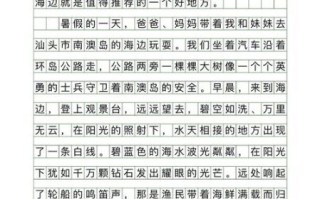 海边就是值得推荐的一个好地方。
暑假的一天，爸爸、妈妈带着我和妹妹去
汕头市南澳岛的海边玩耍。我们坐着汽车沿着
环岛公路走，公路两旁一棵棵大树像一个个英
勇的士兵守卫着南澳岛的安全。早晨，来到海
边，登上观景台，远远望去，碧空如洗、万里
无云，在阳光的照射下，水天相接的地方出现
了一条白线。碧蓝色的海水波光粼粼，在阳光
下犹如千万颗钻石发出耀眼的光芒。远处响起
了轮船的鸣笛声，那是渔民带着海鲜满载而归